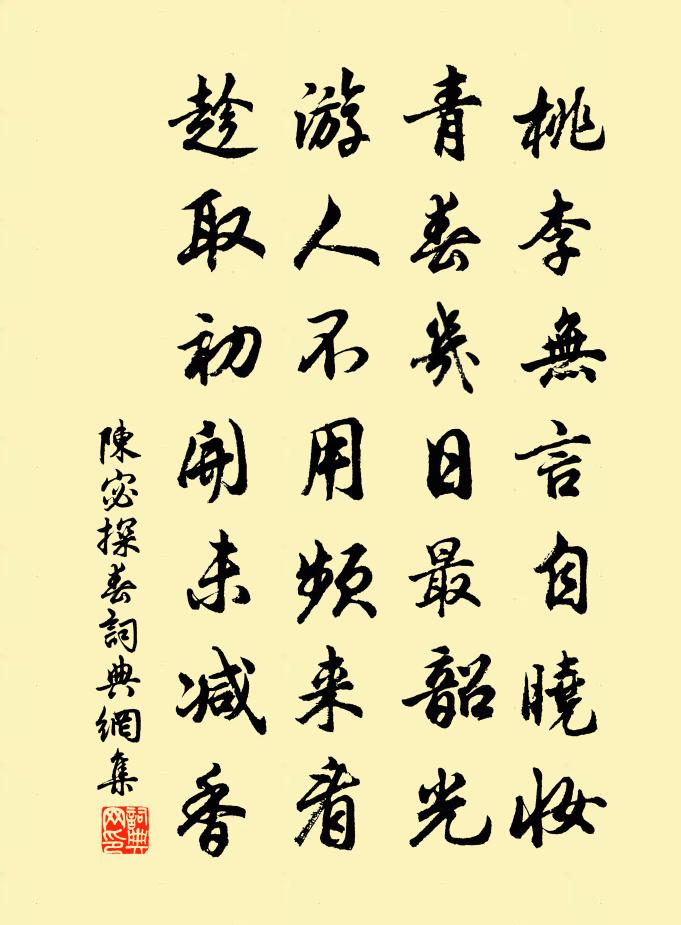 桃李無言自曉妝
青春幾日最韶光
游人不用頻来看
趁取初開未减香
陳宓探春詞典網集
詞典网印